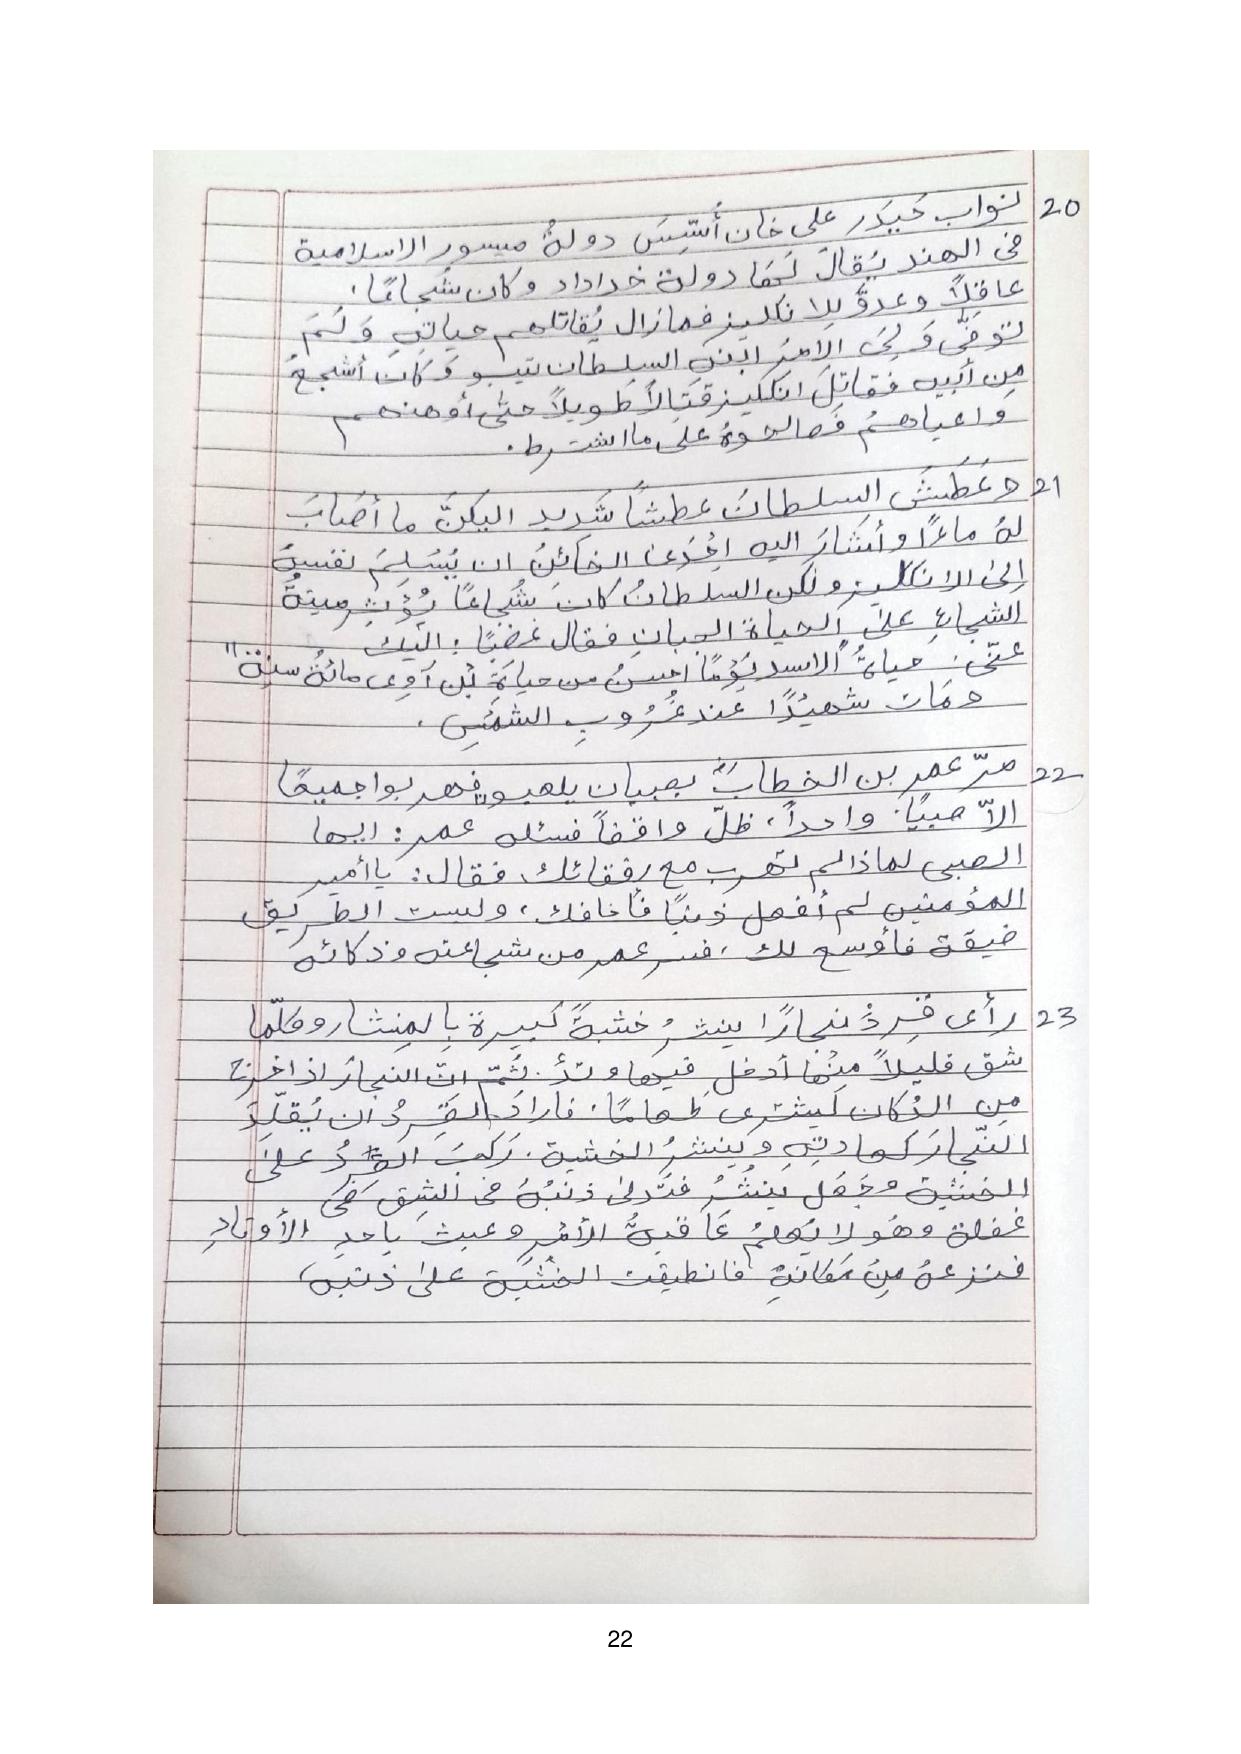 20 نواب حَيدَر على خان أَسَّسَ دولةُ ميسور الاسلامية
فى الهند يُقالُ لَهَا دولة خداداد وكان شُجاعًا،
عاقِلاً وعدوٌّ بلا نكليز فمازال يُقاتلهم حياتِى وَلَمَ
توفّى وَلِىَ الامرُ ابنى السلطان تيبو وَكَانَ أشجعُ
مِن أبيه فقاتلَ انكليز قتالاً طويلاً حتى أوهنهم
واعياهمُ فصالحوهُ على ما اشترط.
21 وعَطِشَ السلطانُ عطشاً شديد اليكنَّ ما أصَابَ
لهُ ماءًا وأشارَ اليه اِحْدىٰ الخائنُ ان يُسَلِّمَ نفسهُ
إلىٰ الانكليز ولكن السلطانُ كانَ شُجاعًا يُؤثِر ميتةُ
الشجاعِ علىٰ الحياة الجبانِ فقال غضبًا: اليك
عنّى. حياةُ الاسد يَوْمًا احسنُ من حياةِ ابْن آوى مائةُ سنة"
ومَات شهيدًا عند غُرُوبِ الشَّمْسِ.
22 مرّ عمر بن الخطابؓ بصبيان يلعبون فهربوا جميعًا
الاّ صبيًا. واحداً، ظلّ واقفاً فسئله عمر: ايها
الصبى لماذا لم تهرب مع رفقائك، فقال: يا أمير
المؤمنين لم أفعل ذنبًا فأخافك، وليست الطريق
ضيقة فأوسع لك، فسر عمر من شجاعته وذكائه
23 رأى قِردٌ نجارًا ينشرُ خشبةً كبيرة بِالمِنشار وكلّما
شق قليلاً مِنْهَا أدخل فيها وتدًا. ثُمّ انّ النجارَ اذا خرج
مِن الدُكان ليشترى طعامًا. فارادَ القِردُ ان يُقلِّدَ
النّجارَ كعادتِهِ وَينشرُ الخشبة. رَكبَ القردُ علىٰ
الخشبة وجَعَل ينشُرُ فتَدلىٰ ذنبُهُ فى الشِق فِى
غفلة وهُو لا يَعلمُ عَاقبةُ الأمْرِ وعبث باحدِ الأوتادِ
فنزعهُ مِنْ مَكانهِ فانطبقت الخشبَة علىٰ ذنبه،
22